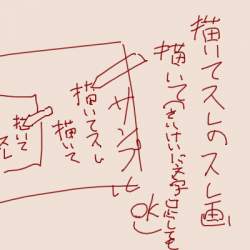 描いてスレのスレ画
描いて(さいけいに文字足しても
OK)
サンプル
描いてスレ
描いて
描いて
スレ